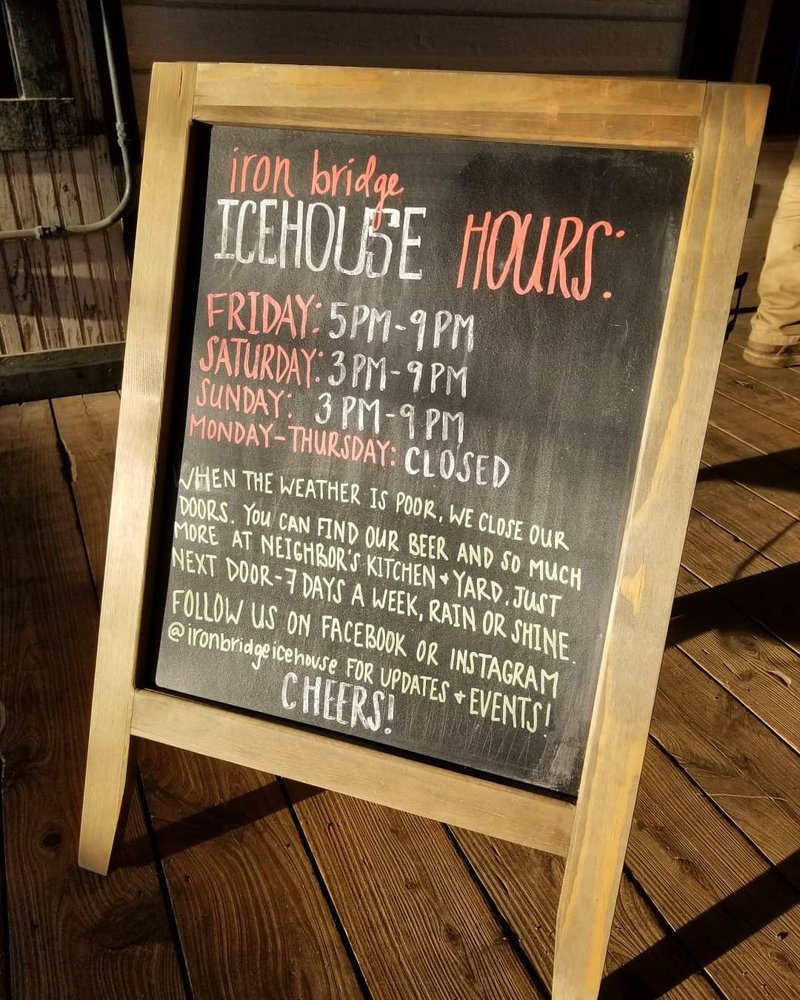 iron bridge
ICEHOUSE HOURS:
FRIDAY: 5PM-9PM
SATURDAY: 3PM-9PM
SUNDAY: 3PM-9PM
MONDAY-THURSDAY: CLOSED
WHEN THE WEATHER IS POOR, WE CLOSE OUR
DOORS. YOU CAN FIND OUR BEER AND SO MUCH
MORE AT NEIGHBOR'S KITCHEN + YARD, JUST
NEXT DOOR-7 DAYS A WEEK, RAIN OR SHINE.
FOLLOW US ON FACEBOOK OR INSTAGRAM
@ironbridgeicehouse FOR UPDATES + EVENTS!
CHEERS!